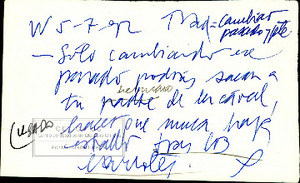 W 5-7-92 T Bad = cambiar
pasado y pte
— Solo cambiando ese
pasado podrás sacar a
tu padre de la cárcel,
hacer que nunca haya
USADO
estado tras los
barrotes.